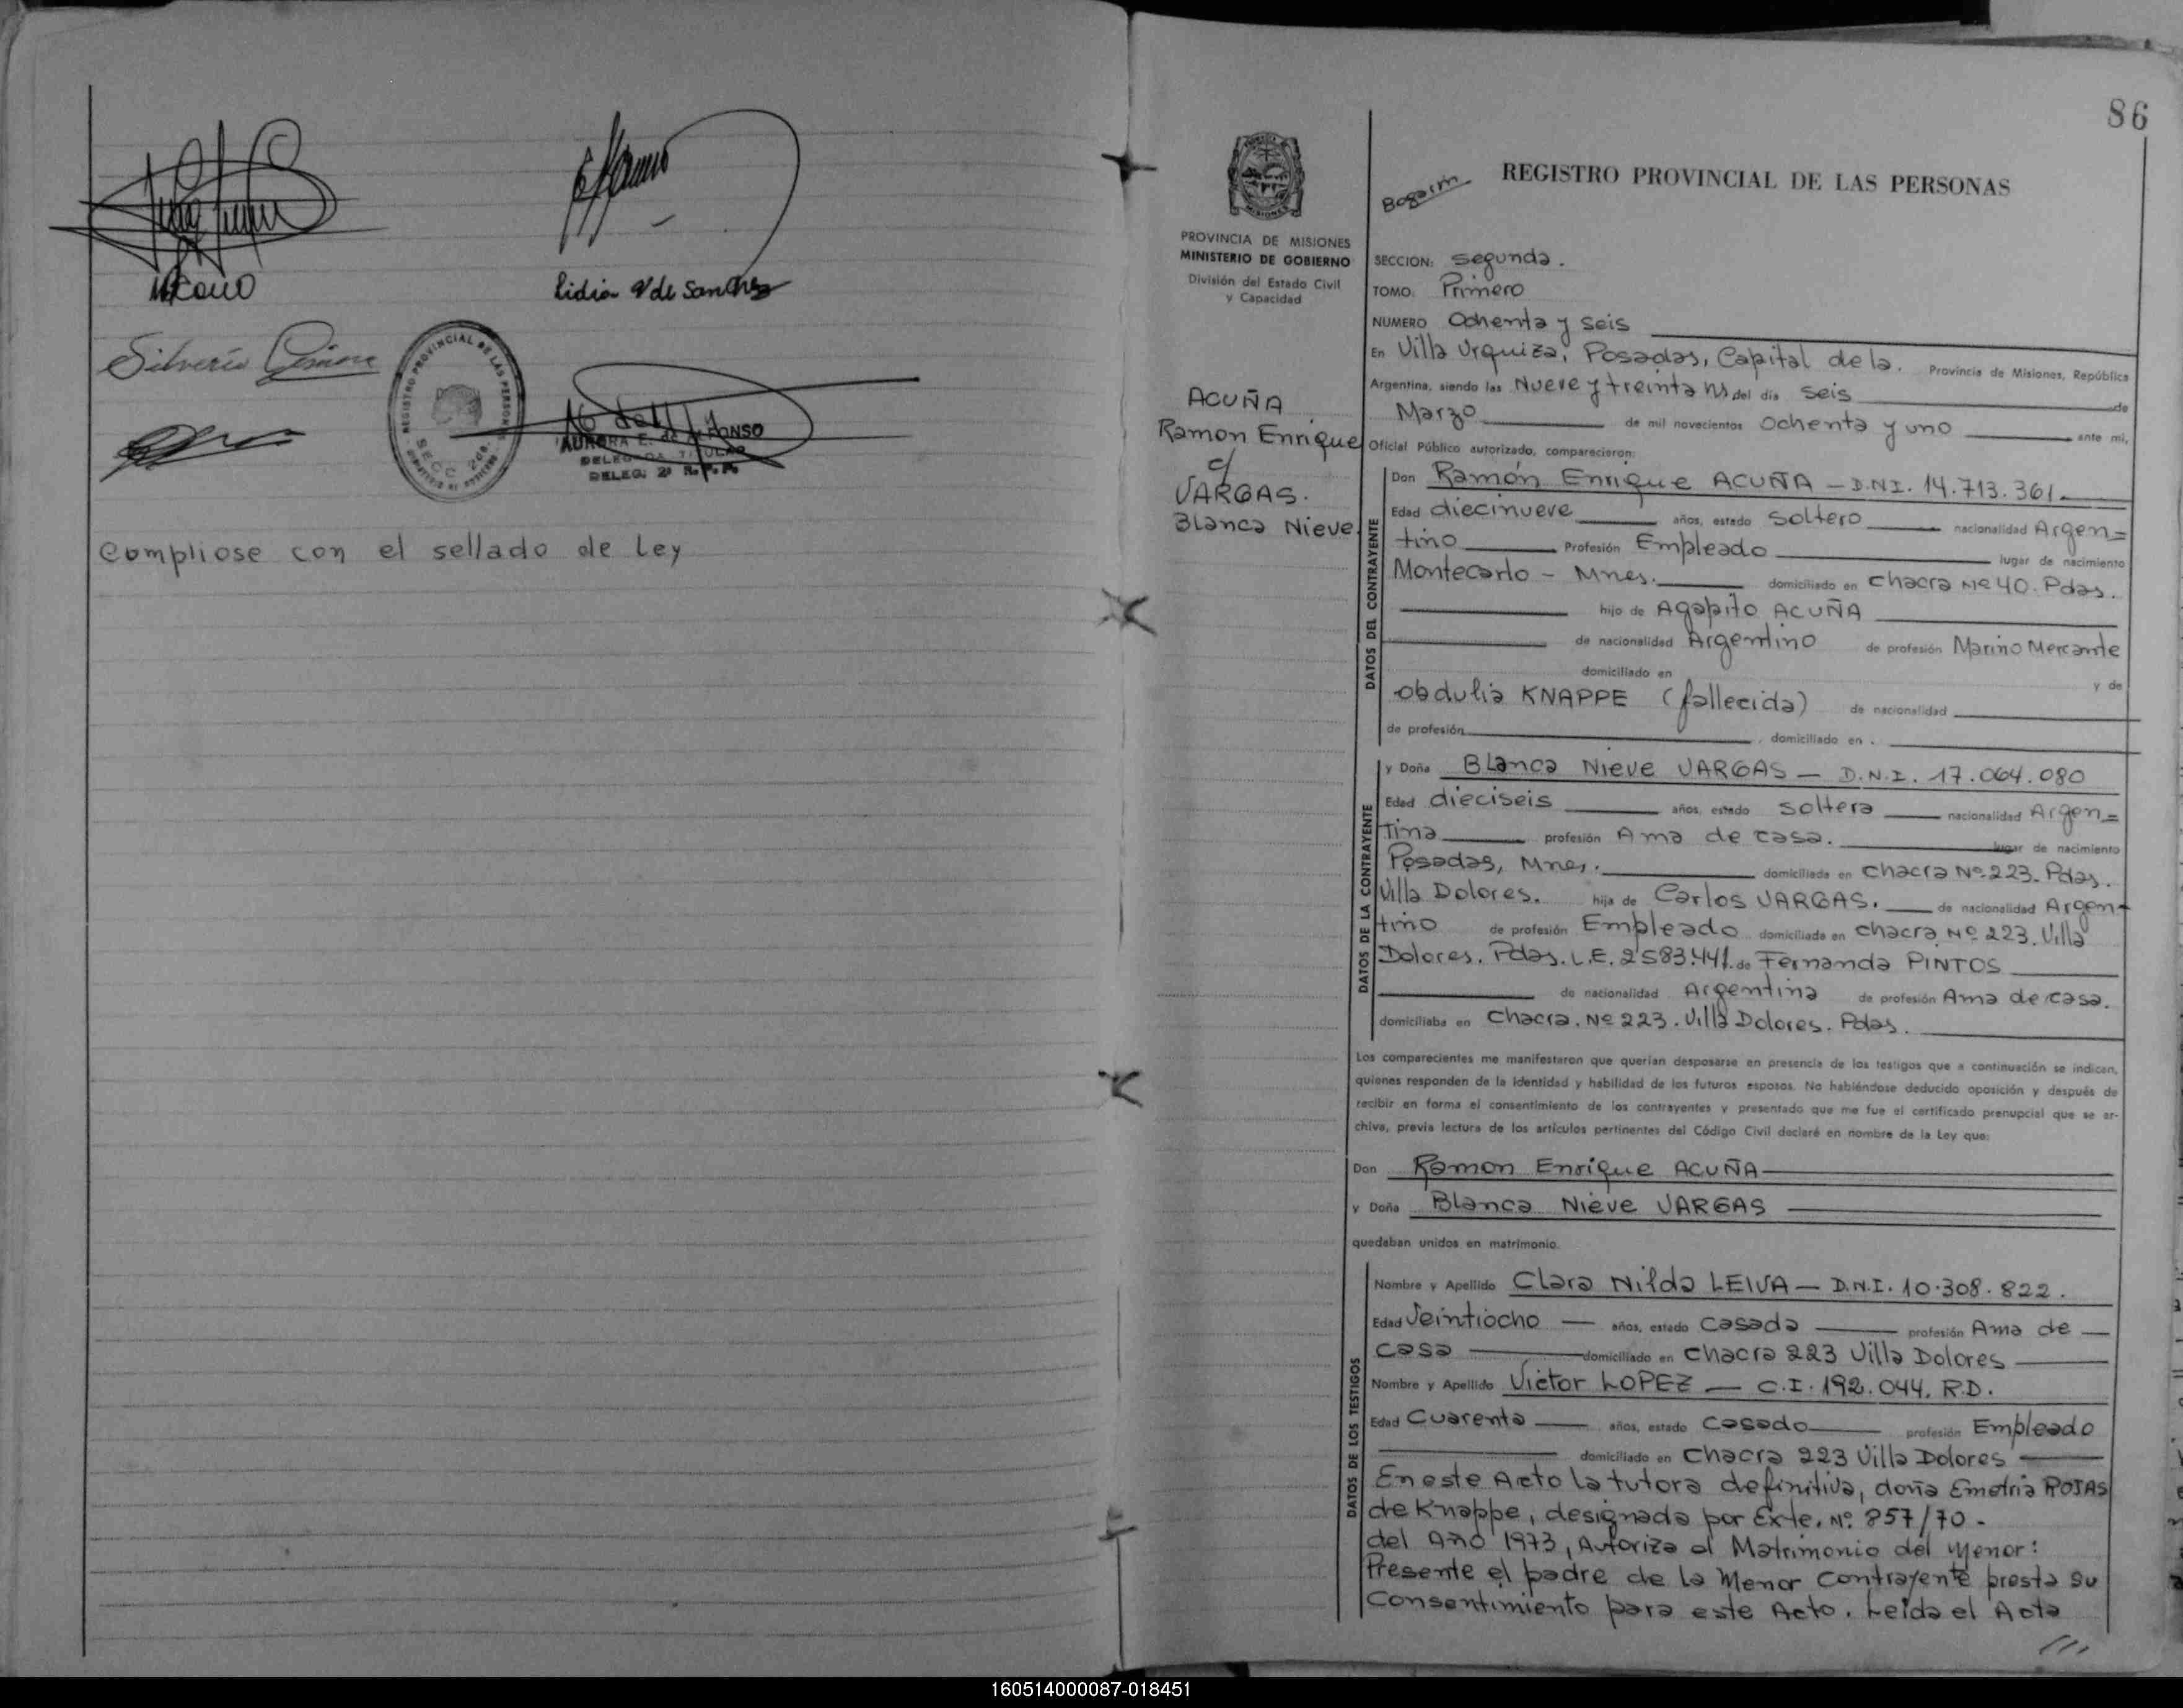 Lidia V de Sanchez
Silverio
REGISTRO PROVINCIAL DE LAS PERSONAS
SECC. 2da.
AURORA E. de ALFONSO
DELEGADA TITULAR
DELEG. 2ª R.P.P.
Cumpliose con el sellado de Ley
86
REGISTRO PROVINCIAL DE LAS PERSONAS
Bogarin
PROVINCIA DE MISIONES
MINISTERIO DE GOBIERNO
División del Estado Civil
y Capacidad
ACUÑA
Ramon Enrique
c/
VARGAS.
Blanca Nieve
SECCION: Segunda.
TOMO: Primero
NUMERO Ochenta y seis
En Villa Urquiza, Posadas, Capital de la. Provincia de Misiones, República
Argentina, siendo las Nueve y treinta hs del día seis de
Marzo de mil novecientos Ochenta y uno ante mi,
Oficial Público autorizado, comparecieron:
DATOS DEL CONTRAYENTE
Don Ramón Enrique ACUÑA - D.N.I. 14.713.361.
Edad diecinueve años, estado Soltero nacionalidad Argen=
tino Profesión Empleado lugar de nacimiento
Montecarlo - Mnes. domiciliado en chacra Nº 40. Pdas.
hijo de Agapito ACUÑA
de nacionalidad Argentino de profesión Marino Mercante
domiciliado en y de
obdulia KNAPPE (fallecida) de nacionalidad
de profesión , domiciliado en .
DATOS DE LA CONTRAYENTE
y Doña Blanca Nieve VARGAS - D.N.I. 17.064.080
Edad dieciseis años, estado soltera nacionalidad Argen=
tina profesión Ama de casa. lugar de nacimiento
Posadas, Mnes. domiciliada en chacra Nº 223. Pdas.
Villa Dolores. hija de Carlos VARGAS. de nacionalidad Argen-
tino de profesión Empleado domiciliado en chacra Nº 223. Villa
Dolores. Pdas. L.E. 2583.441. de Fernanda PINTOS
de nacionalidad Argentina de profesión Ama de casa.
domiciliaba en Chacra. Nº 223. Villa Dolores. Pdas.
Los comparecientes me manifestaron que querían desposarse en presencia de los testigos que a continuación se indican,
quienes responden de la identidad y habilidad de los futuros esposos. No habiéndose deducido oposición y después de
recibir en forma el consentimiento de los contrayentes y presentado que me fue el certificado prenupcial que se ar-
chiva, previa lectura de los artículos pertinentes del Código Civil declaré en nombre de la Ley que:
Don Ramon Enrique ACUÑA
y Doña Blanca Nieve VARGAS
quedaban unidos en matrimonio.
DATOS DE LOS TESTIGOS
Nombre y Apellido Clara Nilda LEIVA - D.N.I. 10.308.822.
Edad Veintiocho años, estado casada profesión Ama de
casa domiciliado en chacra 223 Villa Dolores
Nombre y Apellido Victor LOPEZ - C.I. 192.044. R.D.
Edad Cuarenta años, estado casado profesión Empleado
domiciliado en Chacra 223 Villa Dolores
En este Acto la tutora definitiva, doña Emetria ROJAS
de Knappe, designada por Exte. Nº 857/70-
del Año 1973, Autoriza al Matrimonio del Menor:
Presente el padre de la Menor contrayente presta su
Consentimiento para este Acto. Leida el Acta
///
160514000087-018451